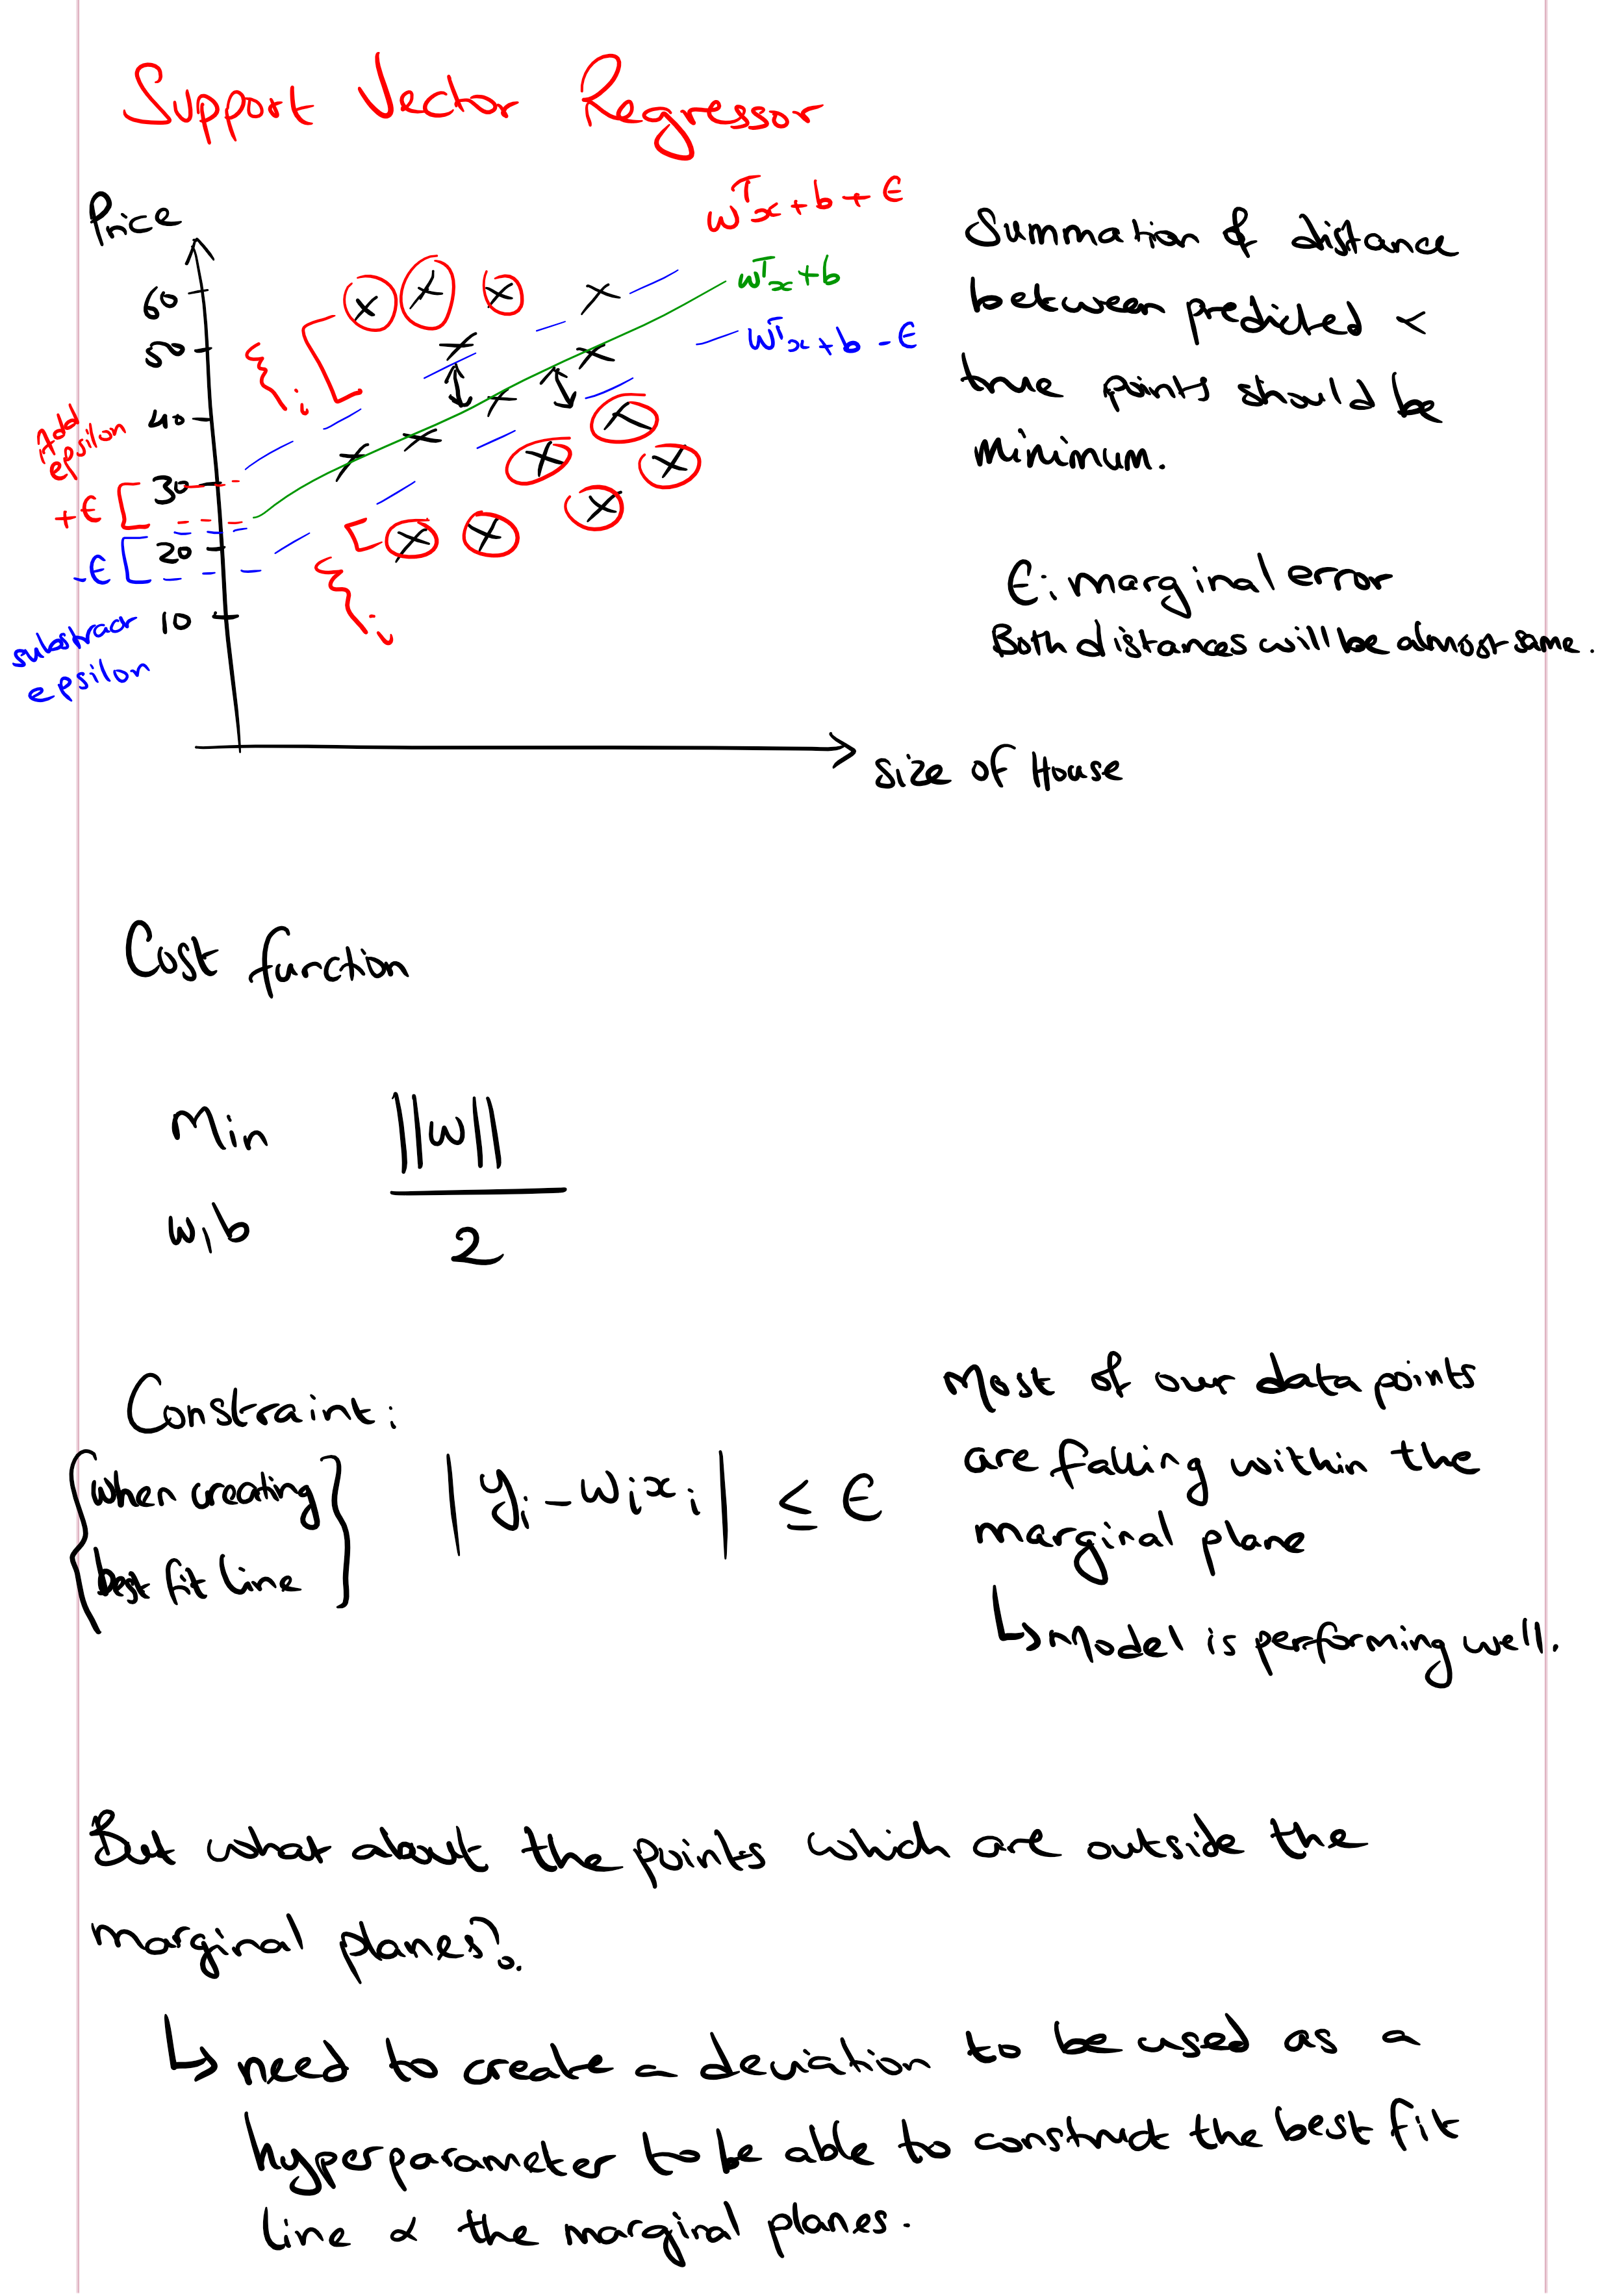 Support Vector Regressor
Price
60
50
40
30
20
10
Add
epsilon
+ϵ
-ϵ
substract
epsilon
ξi
ξi
wᵀx+b+ϵ
wᵀx+b
wᵀx+b-ϵ
size of House
Summation of distance
between predicted &
true points should be
minimum.
ϵ: marginal error
Both distances will be almost same.
Cost function
Min
w,b
||w||
2
Constraint:
{when creating
best fit line}
|yi - wixi| ≤ ϵ
Most of our data points
are falling within the
marginal plane
↳ Model is performing well.
But what about the points which are outside the
marginal planes?
↳ need to create a deviation to be used as a
hyperparameter to be able to construct the best fit
line & the marginal planes.